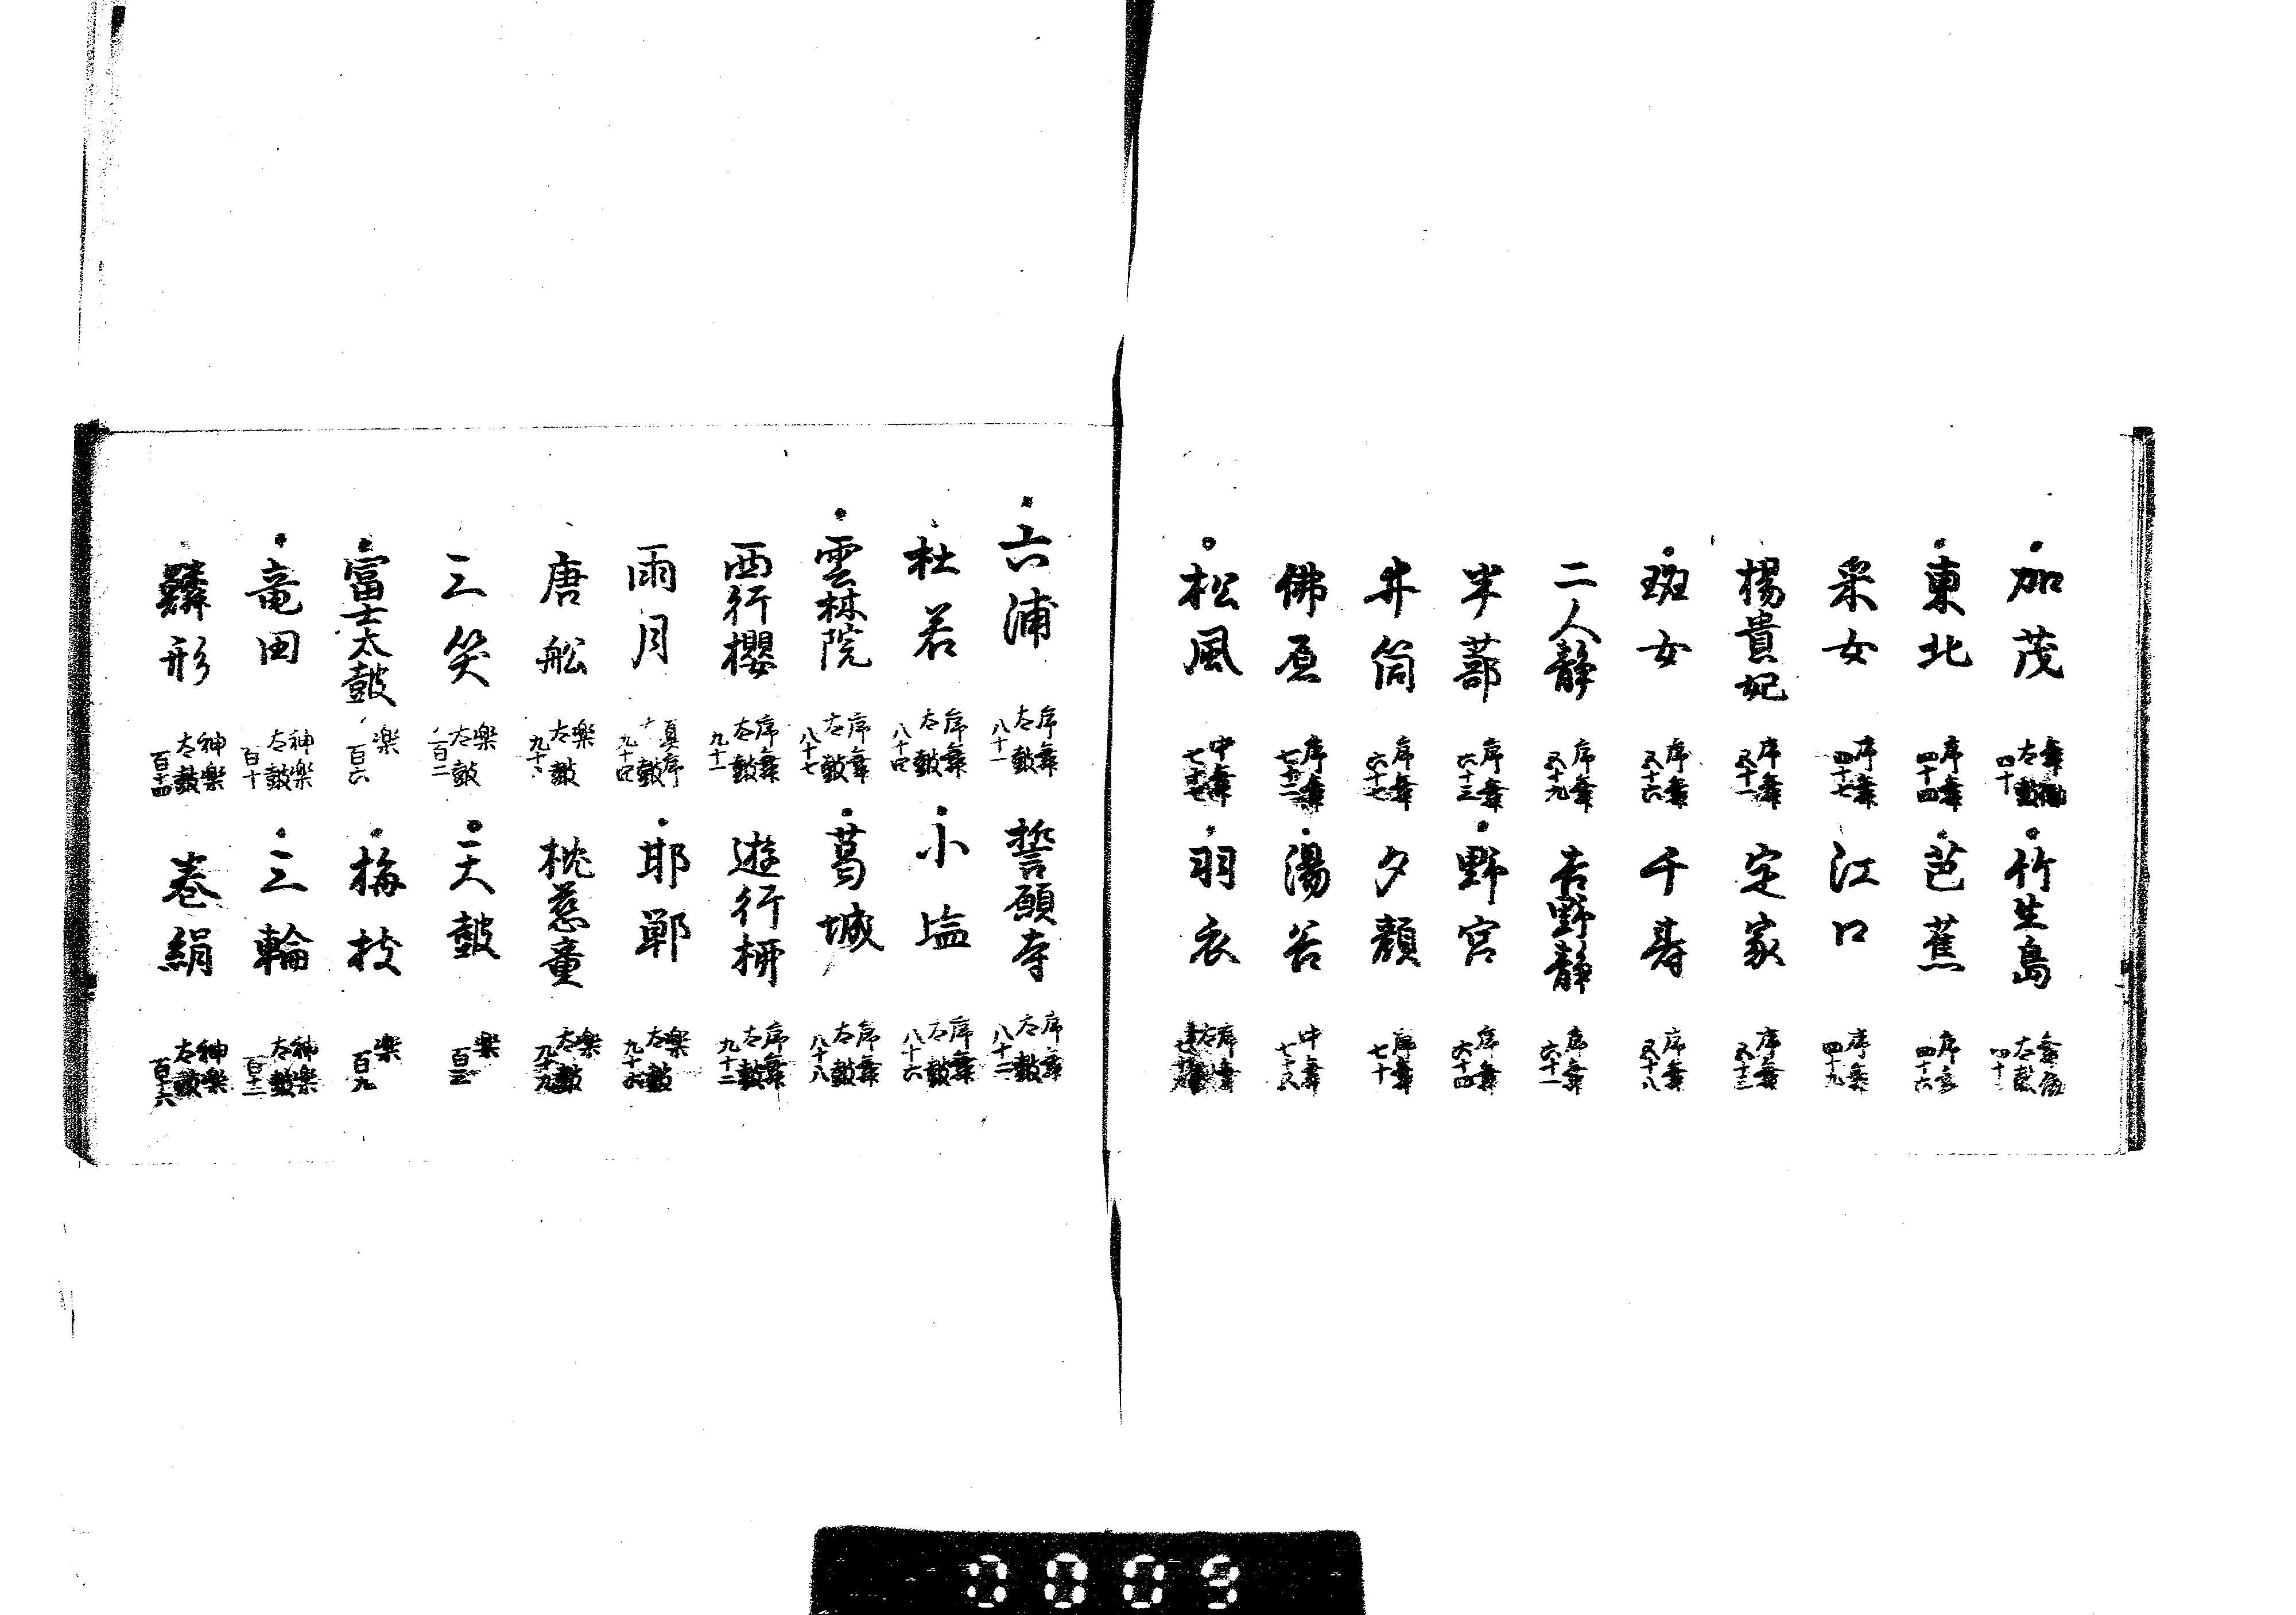 加茂 太鼓 四十
竹生島 太鼓
東北 序舞 四十四
芭蕉 序舞 四十六
采女 序舞 四十七
江口 序舞 四十九
楊貴妃 序舞 五十一
定家 序舞 五十三
斑女 序舞 五十六
千寿 序舞 五十八
二人静 序舞 五十九
吉野静 序舞 六十一
半蔀 序舞 六十三
野宮 序舞 六十四
井筒 序舞 六十七
夕顔 序舞 七十
佛原 序舞
湯谷 中舞
松風 中舞
羽衣 序舞 太鼓
六浦 序舞 太鼓 八十一
誓願寺 序舞 太鼓 八十二
杜若 序舞 太鼓 八十四
小塩 序舞 太鼓 八十六
雲林院 序舞 太鼓 八十七
葛城 序舞 太鼓 八十八
西行櫻 序舞 太鼓 九十一
遊行柳 序舞 太鼓 九十二
雨月 真序 太鼓 九十四
邯鄲 楽 太鼓 九十六
唐舩 楽 太鼓
枕慈童 楽 太鼓 九十九
三笑 楽 太鼓 百二
天鼓 楽 百三
富士太鼓 楽 百六
梅枝 楽 百九
竜田 神楽 太鼓 百十
三輪 神楽 太鼓 百十二
鱗形 神楽 太鼓 百十四
巻絹 神楽 太鼓 百十六
0005